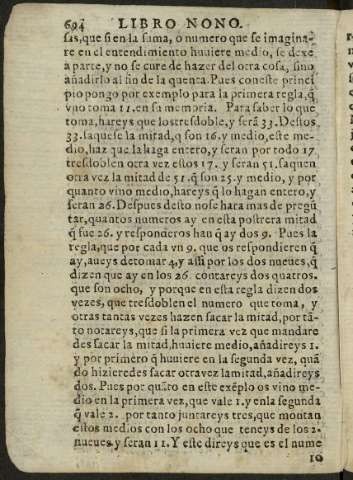 694 LIBRO NONO.
sas, que si en la suma, o numero que se imagina-
re en el entendimiento huuiere medio, se dexe
a parte, y no se cure de hazer del otra cosa, sino
añadirlo al fin de la quenta. Pues con este princi
pio pongo por exemplo para la primera regla, q̃
vno toma 11. en su memoria. Para saber lo que
toma, hareys que los tresdoble, y serã 33. Destos
33. saquese la mitad, q̃ son 16. y medio, este me-
dio, haz que la haga entero, y seran por todo 17.
tresdoblen otra vez estos 17. y seran 51. saquen
otra vez la mitad de 51. q̃ son 25. y medio, y por
quanto vino medio, hareys q̃ lo hagan entero, y
seran 26. Despues desto no se hara mas de pregũ
tar, quantos numeros ay en esta postrera mitad
q̃ fue 26. y responderos han q̃ ay dos 9. Pues la
regla, que por cada vn 9. que os respondieren q̃
ay, aueys de tomar 4, y assi por los dos nueues, q̃
dizen que ay en los 26. contareys dos quatros.
que son ocho, y porque en esta regla dizen dos
vezes, que tresdoblen el numero que toma, y
otras tantas vezes hazen sacar la mitad, por tã-
to notareys, que si la primera vez que mandare
des sacar la mitad, huuiere medio, añadireys 1.
y por primero q̃ huuiere en la segunda vez, quã
do hizieredes sacar otra vez la mitad, añadireys
dos. Pues por quãto en este exẽplo os vino me-
dio en la primera vez, que vale 1. y en la segunda
q̃ vale 2. por tanto juntareys tres, que montan
estos medios con los ocho que teneys de los 2.
nueues, y seran 11. Y este direys que es el nume
10